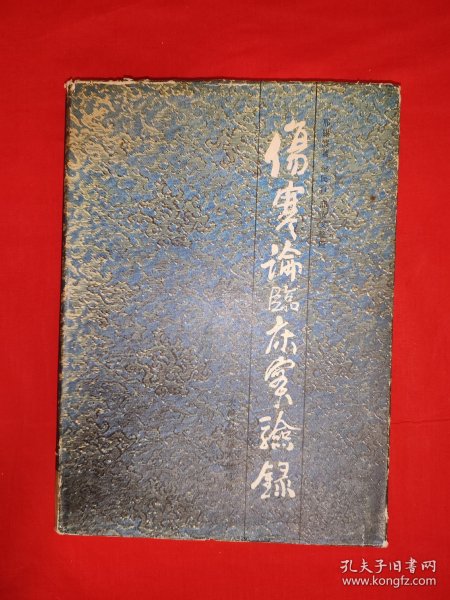 傷寒論臨床实驗録
孔夫子旧书网
www.kongfz.com